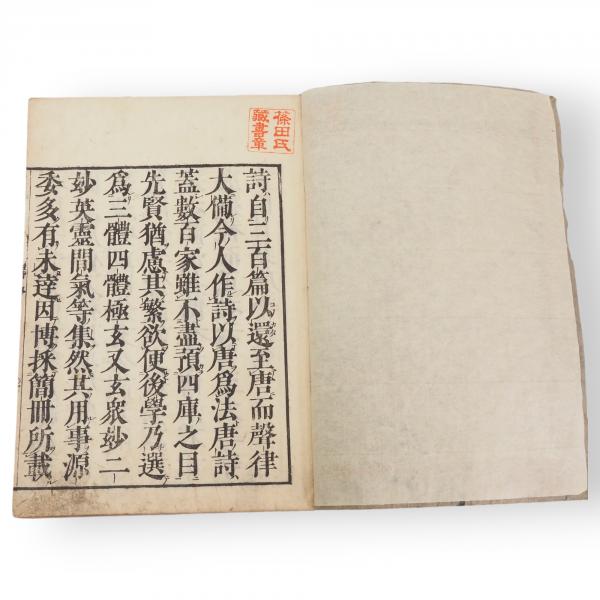 篠田氏
藏書章
詩自三百篇以還至唐而聲律
大備今人作詩以唐爲法唐詩
蓋數百家雖不盡預四庫之目
先賢猶慮其繁欲便後學乃選
爲三體四體極玄又玄衆妙二
妙英靈間氣等集然其用事源
委多有未達因博採簡冊所載